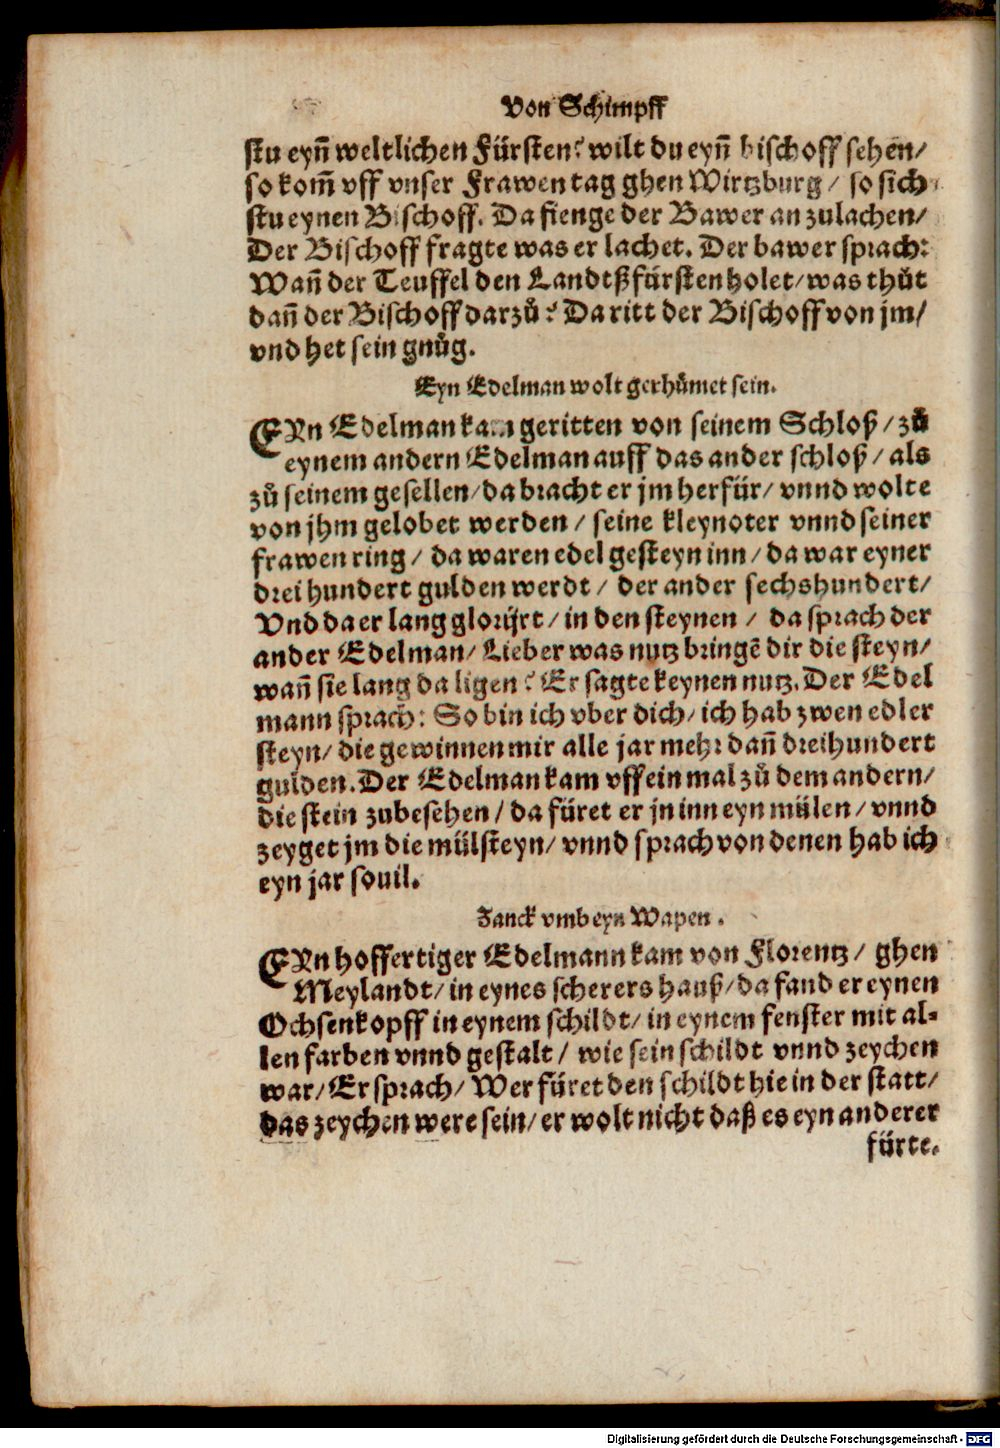 Von Schimpff
stu eyn̄ weltlichen Fürsten? wilt du eyn̄ bischoff sehen/
so kom̄ vff vnser Frawen tag ghen Wirtzburg / so sich
stu eynen Bischoff. Da fienge der Bawer an zulachen/
Der Bischoff fragte was er lachet. Der bawer sprach:
Wan̄ der Teuffel den Landtßfürsten holet/ was thůt
dan̄ der Bischoff darzů? Da ritt der Bischoff von jm/
vnd het sein gnůg.
Eyn Edelman wolt gerhůmet sein.
EYn Edelman kam geritten von seinem Schloß / zů
eynem andern Edelman auff das ander schloß / als
zů seinem gesellen/ da bracht er jm herfür/ vnnd wolte
von jhm gelobet werden / seine kleynoter vnnd seiner
frawen ring / da waren edel gesteyn inn / da war eyner
drei hundert gulden werdt / der ander sechshundert/
Vnd da er lang glorijrt/ in den steynen / da sprach der
ander Edelman/ Lieber was nutz bringē dir die steyn/
wan̄ sie lang da ligen? Er sagte keynen nutz. Der Edel
mann sprach: So bin ich vber dich/ ich hab zwen edler
steyn/ die gewinnen mir alle jar mehr dan̄ dreihundert
gulden. Der Edelman kam vff ein mal zů dem andern/
die stein zubesehen / da füret er jn inn eyn mülen / vnnd
zeyget jm die mülsteyn/ vnnd sprach von denen hab ich
eyn jar souil.
Zanck vmb eyn Wapen.
EYn hoffertiger Edelmann kam von Florentz / ghen
Meylandt/ in eynes scherers hauß/ da fand er eynen
Ochsenkopff in eynem schildt/ in eynem fenster mit al-
len farben vnnd gestalt / wie sein schildt vnnd zeychen
war/ Er sprach/ Wer füret den schildt hie in der statt/
das zeychen were sein/ er wolt nicht daß es eyn anderer
fürte.
Digitalisierung gefördert durch die Deutsche Forschungsgemeinschaft - DFG